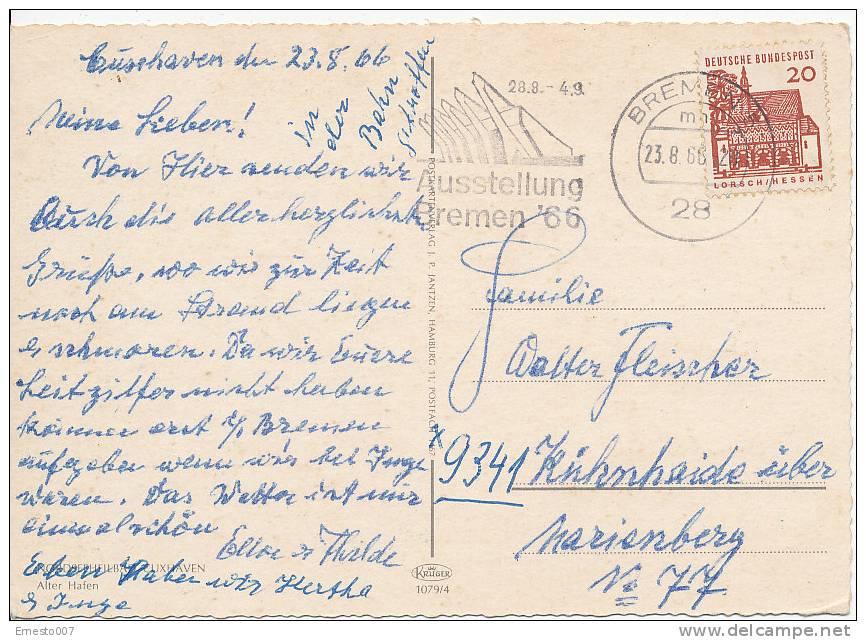 Cuxhaven den 23.8.66
Meine Lieben!
Von Hier senden wir
Euch die allerherzlichst.
Grüße, wo wir zur Zeit
noch am Strand liegen
& schmoren. Da wir Euere
Leitziffer nicht haben
können erst i/ Bremen
aufgeben wenn wir bei Inge
waren. Das Wetter ist nur
einmalschön
Eben haben wir Hertha
& Inge
in der Bahn getroffen
NORDSEEHEILBAD CUXHAVEN
Alter Hafen
POSTKARTENVERLAG J. P. JANTZEN, HAMBURG 11, POSTFACH
KRÜGER
1079/4
28.8.-4.9.
Ausstellung
Bremen '66
BREMEN
23.8.66
28
DEUTSCHE BUNDESPOST
20
LORSCH/HESSEN
Familie
Walter Fleischer
9341 Kühnhaide über
Marienberg
No 77
Ernesto007
www.delcampe.net